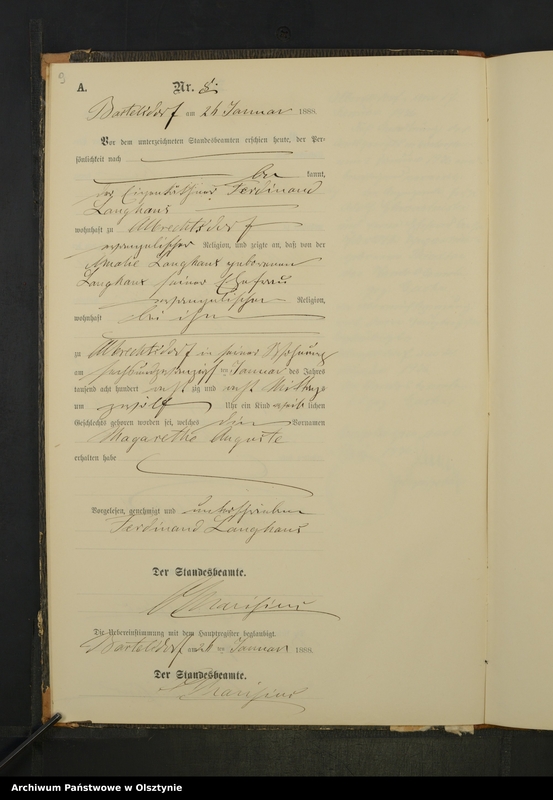 9
A.
Nr. 8.
Bartelsdorf am 26 Januar 1888.
Vor dem unterzeichneten Standesbeamten erschien heute, der Per-
sönlichkeit nach
be kannt,
der Eigenkäthner Ferdinand
Langhans
wohnhaft zu Albrechtsdorf
evangelischer Religion, und zeigte an, daß von der
Amalie Langhans geborenen
Langhans seiner Ehefrau
evangelischer Religion,
wohnhaft bei ihm
zu Albrechtsdorf in seiner Wohnung
am sechsundzwanzigsten Januar des Jahres
tausend acht hundert achtzig und acht Mittags
um zwölf Uhr ein Kind weiblichen
Geschlechts geboren worden sei, welches die Vornamen
Magarethe Auguste
erhalten habe
Vorgelesen, genehmigt und unterschrieben
Ferdinand Langhans
Der Standesbeamte.
Die Uebereinstimmung mit dem Hauptregister beglaubigt.
Bartelsdorf am 26 ten Januar 1888.
Der Standesbeamte.
Archiwum Państwowe w Olsztynie